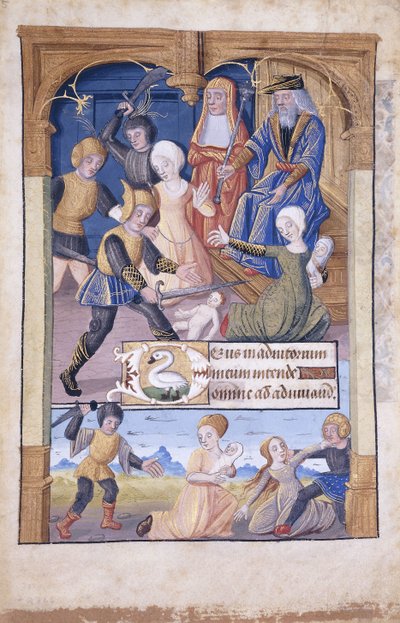 Deus in adiutorium
meum intende
Domine ad adiuuand